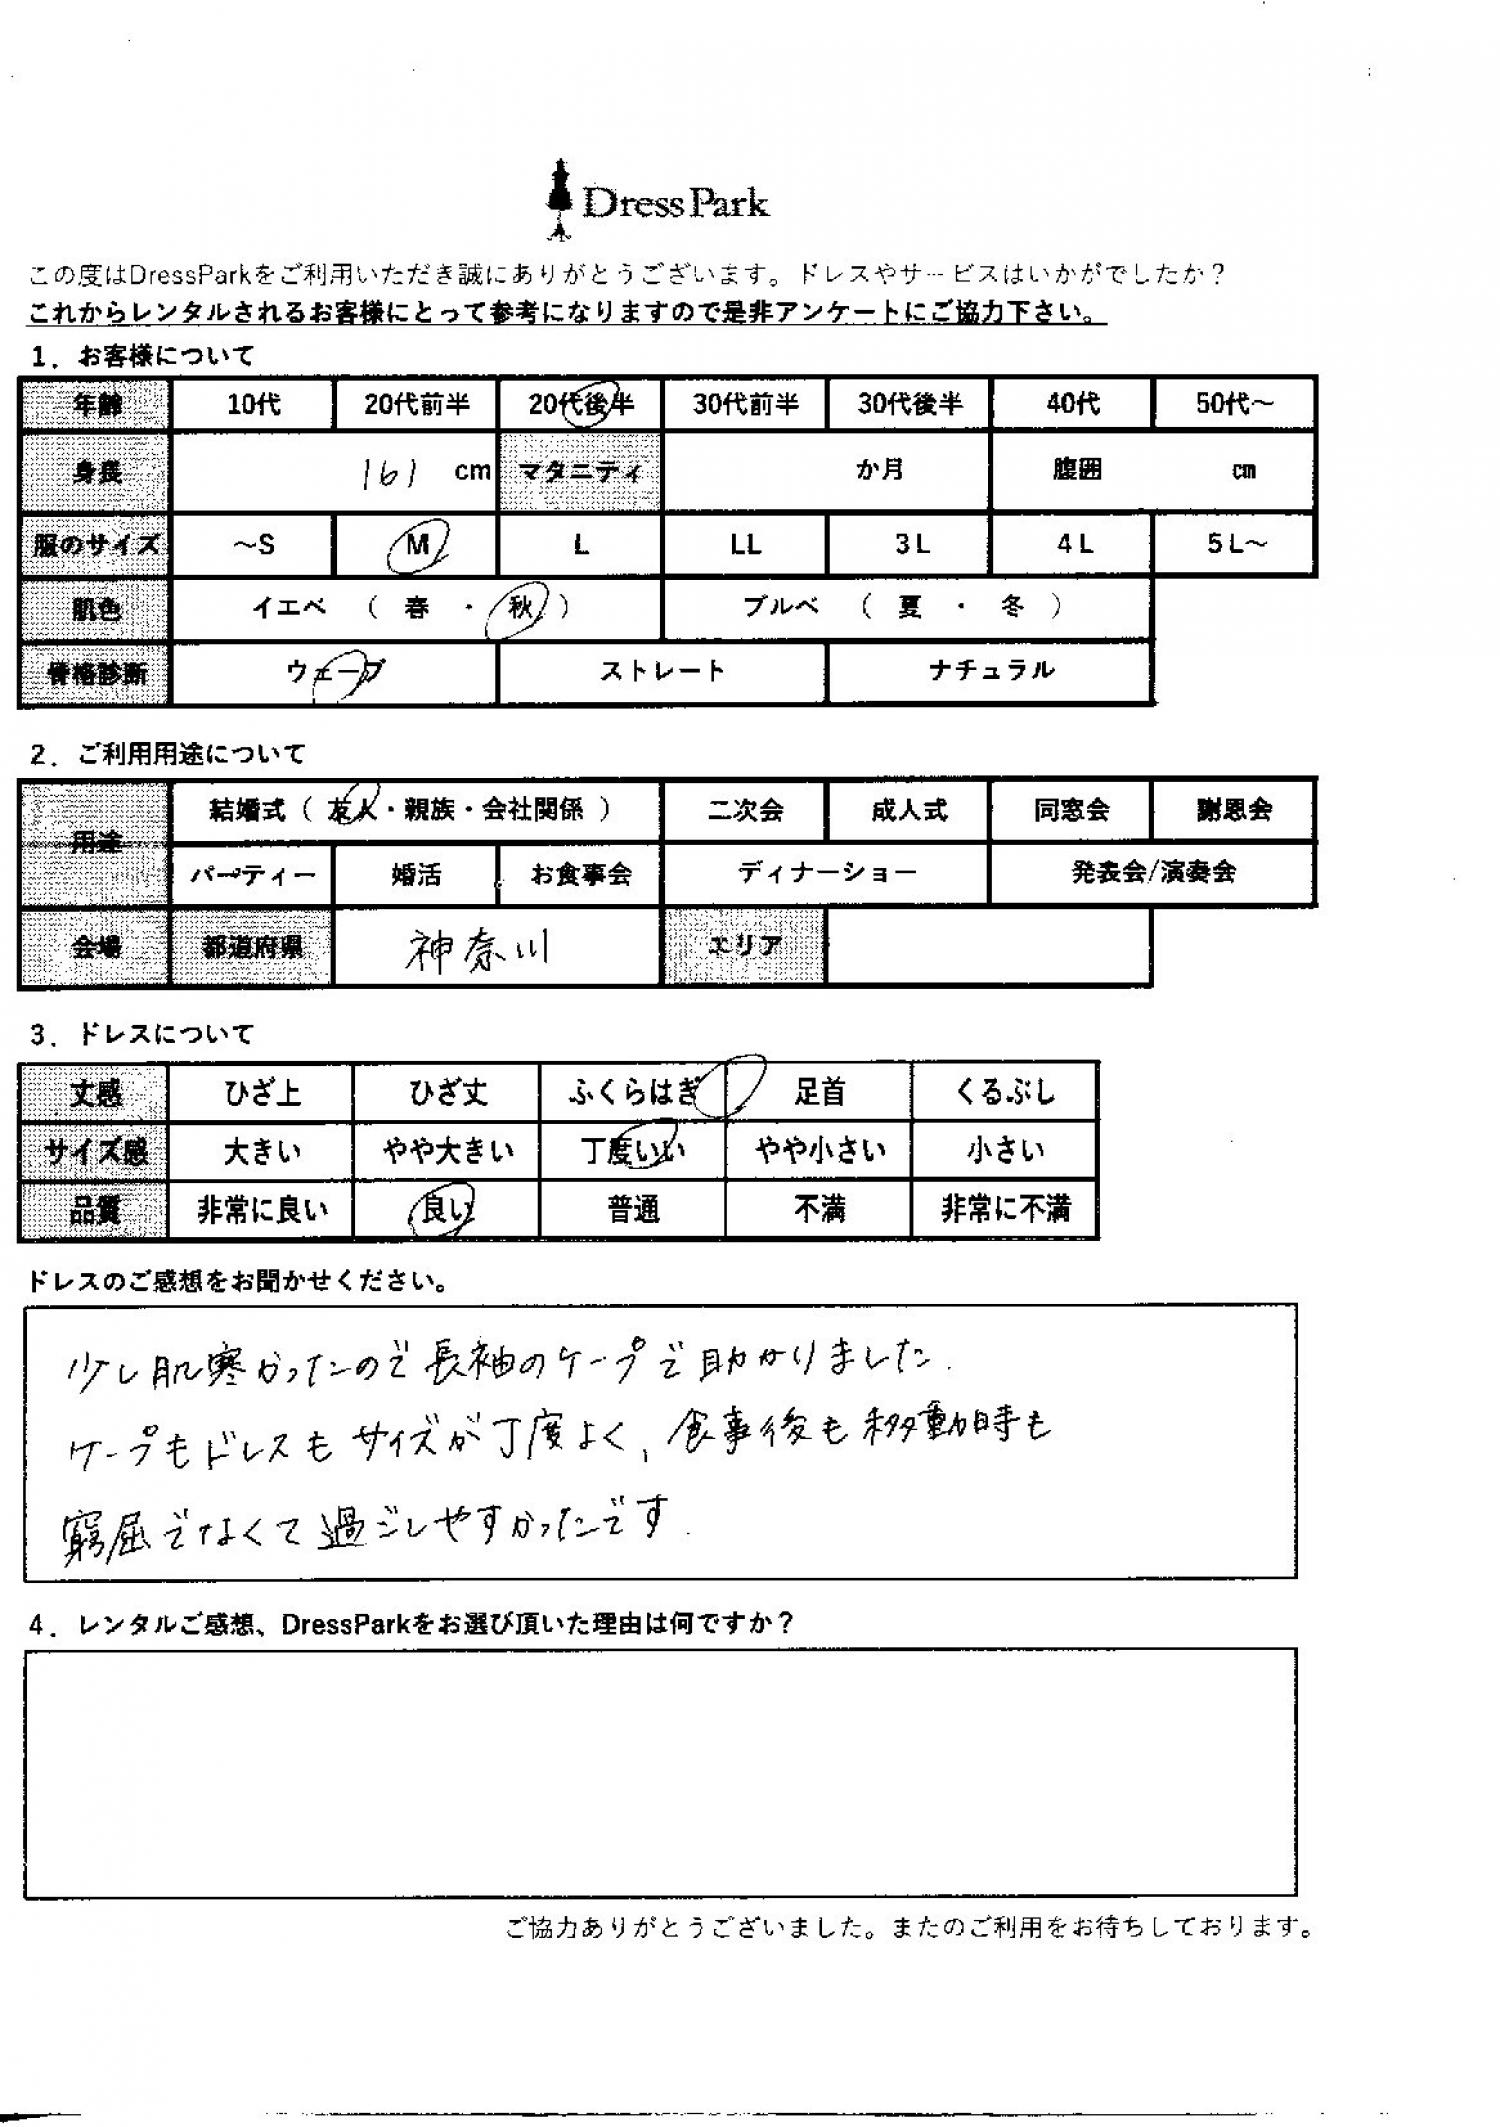 DressPark
この度はDressParkをご利用いただき誠にありがとうございます。ドレスやサービスはいかがでしたか？
これからレンタルされるお客様にとって参考になりますので是非アンケートにご協力下さい。
1．お客様について
年齢 10代 20代前半 20代後半 30代前半 30代後半 40代 50代～
身長 161 cm マタニティ か月 腹囲 ㎝
服のサイズ ～S M L LL 3L 4L 5L～
肌色 イエベ （ 春 ・ 秋 ） ブルベ （ 夏 ・ 冬 ）
骨格診断 ウェーブ ストレート ナチュラル
2．ご利用用途について
用途 結婚式（ 友人・親族・会社関係 ） 二次会 成人式 同窓会 謝恩会
パーティー 婚活 お食事会 ディナーショー 発表会/演奏会
会場 都道府県 神奈川 エリア
3．ドレスについて
丈感 ひざ上 ひざ丈 ふくらはぎ 足首 くるぶし
サイズ感 大きい やや大きい 丁度いい やや小さい 小さい
品質 非常に良い 良い 普通 不満 非常に不満
ドレスのご感想をお聞かせください。
少し肌寒かったので長袖のケープで助かりました.
ケープもドレスもサイズが丁度よく、食事後も移動時も
窮屈でなくて過ごしやすかったです.
4．レンタルご感想、DressParkをお選び頂いた理由は何ですか？
ご協力ありがとうございました。またのご利用をお待ちしております。